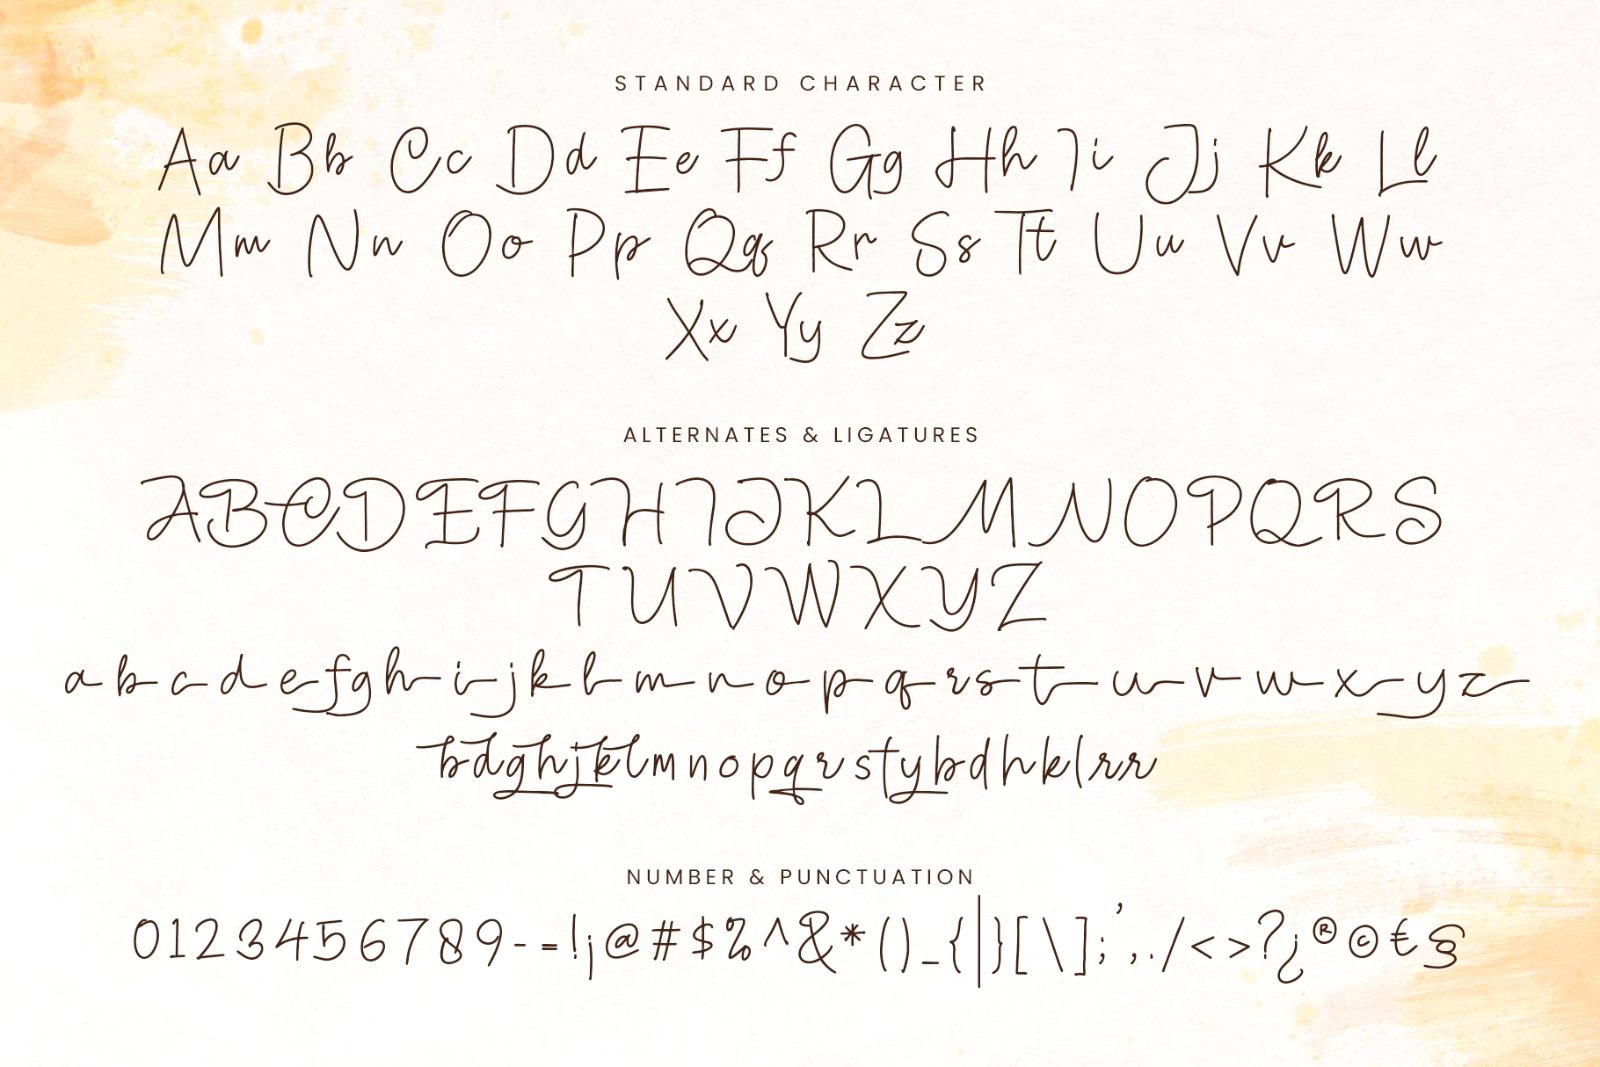 STANDARD CHARACTER
Aa Bb Cc Dd Ee Ff Gg Hh Ii Jj Kk Ll
Mm Nn Oo Pp Qq Rr Ss Tt Uu Vv Ww
Xx Yy Zz
ALTERNATES & LIGATURES
ABCDEFGHIJKLMNOPQRS
TUVWXYZ
a b c d e f g h i j k l m n o p q r s t u v w x y z
b d g h j k l m n o p q r s t y b d h k l r r
NUMBER & PUNCTUATION
0123456789-=!¡@#$%^&*()_{|}[\];',./<>?¿®©€§